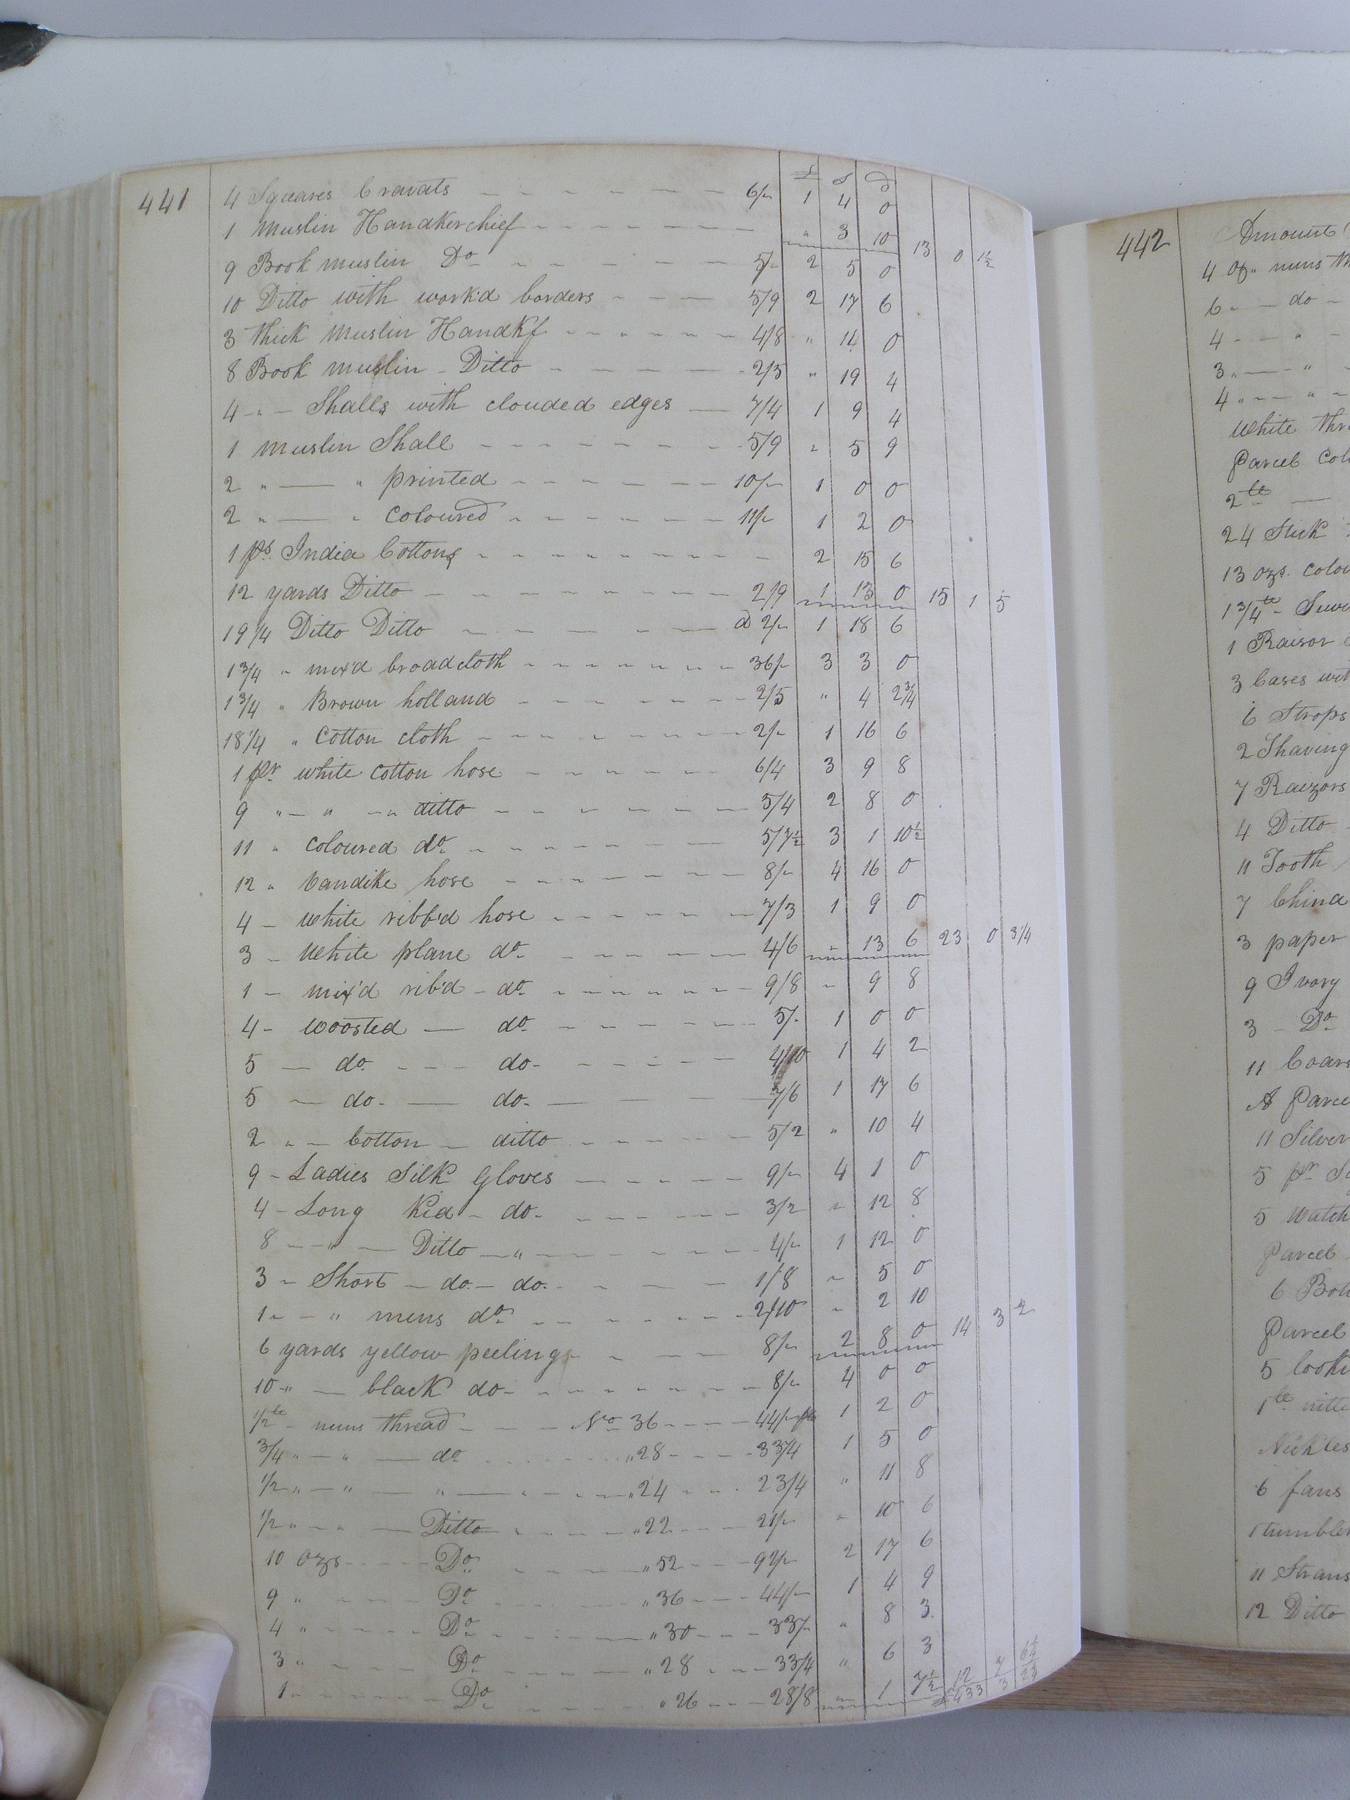 441
£ S D
4 Squares Cravats 6/- 1 4 0
1 Muslin Handkerchief " 3 10 13 0 1½
9 Book muslin Do 5/- 2 5 0
10 Ditto with work'd borders 5/9 2 17 6
3 thick Muslin Handkf 4/8 " 14 0
8 Book muslin - Ditto 2/5 " 19 4
4 - " - Shalls with clouded edges 7/4 1 9 4
1 muslin Shall 5/9 " 5 9
2 " — " printed 10/- 1 0 0
2 " — " Coloured 11/- 1 2 0
1 ps India Cottons 2 15 6
12 yards Ditto 2/9 1 13 0 15 1 5
19¼ Ditto Ditto @ 2/- 1 18 6
1¾ " mix'd broadcloth 36/- 3 3 0
1¾ " Brown holland 2/5 " 4 2¾
18¼ " Cotton cloth 2/- 1 16 6
1 pr white cotton hose 6/4 3 9 8
9 " " " ditto 5/4 2 8 0
11 " coloured do 5/7½ 3 1 10½
12 " Vandike hose 8/- 4 16 0
4 - white ribb'd hose 7/3 1 9 0
3 - White plane do 4/6 " 13 6 23 0 3/4
1 - mix'd rib'd - do 9/8 " 9 8
4 - woosted — do 5/- 1 0 0
5 — do - - - do - 4/10 1 4 2
5 — do - — do - 7/6 1 17 6
2 " - Cotton - ditto 5/2 " 10 4
9 - Ladies Silk Gloves 9/- 4 1 0
4 - Long Kid - do - 3/2 " 12 8
8 - " - Ditto — " 4/- 1 12 0
3 - Short - do - do - 1/8 " 5 0
1 - - " mens do 2/10 " 2 10
6 yards yellow peelings 8/- 2 8 0 14 3 2
10 " — black do - 8/- 4 0 0
1/2 lb nuns thread No 36 44/- 1 2 0
3/4 " - " — do " 28 33/4 1 5 0
1/2 " - " — " — " 24 23/4 " 11 8
1/2 " - " — Ditto " 22 21/- " 10 6
10 ozs Do " 52 92/- 2 17 6
9 " Do " 36 44/- 1 4 9
4 " Do " 30 33/- " 8 3
3 " Do " 28 33/4 " 6 3
1 " Do " 26 28/8 " 1 7½ 12 7
£433 3
442
Amount
4 oz " nuns th
6 " — do -
4 - - " -
3 " — "
4 " - - "
White thr
Parcel Colo
2 lb —
24 Stick
13 ozs. colou
1¾ lb - Sewi
1 Raisor
3 Cases wit
6 Strops
2 Shaving
7 Raizors
4 Ditto
11 Tooth
7 China
3 paper
9 Ivory
3 - Do
11 Coars
A Parce
11 Silver
5 pr
5 Watch
Parcel
6 Bot
Parcel
5 looki
1 lb
6 fans
1 tumbler
11 Straus
12 Ditto